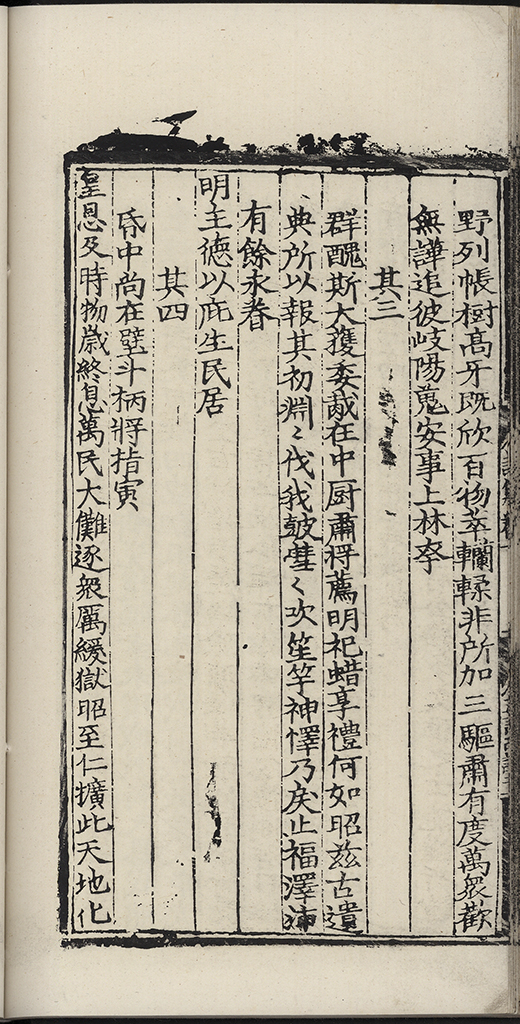 野列帳樹高牙既欣百物萃轥轢非所加三驅肅有度萬衆歡
無譁追彼岐陽蒐安事上林夸
其三
群醜斯大獲委胾在中厨肅将薦明祀蜡享禮何如昭兹古遺
典所以報其初淵〻伐我鼓嘒〻吹笙竽神懌乃戾止福澤沛
有餘永眷
明主徳以庇生民居
其四
昏中尚在壁斗柄将指寅
皇恩及時物歳終息萬民大儺逐衆厲緩獄昭至仁擴此天地化